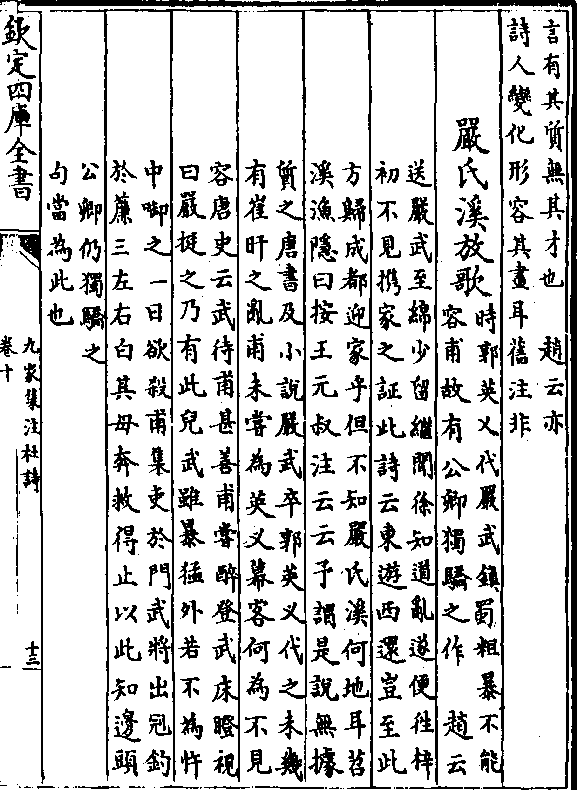 言有其質無其才也　趙云亦
詩人變化形容其畫耳舊注非
嚴氏溪放歌
時郭英乂代嚴武鎮蜀粗暴不能
容甫故有公卿獨驕之作　趙云
送嚴武至綿少留繼聞徐知道亂遂便往梓
初不見携家之証此詩云東遊西還豈至此
方歸成都迎家乎但不知嚴氏溪何地耳苕
溪漁隱曰按王元叔注云云予謂是説無據
質之唐書及小説嚴武卒郭英乂代之未幾
有崔旰之亂甫未嘗為英乂幕客何為不見
容唐史云武待甫甚善甫嘗醉登武床瞪視
曰嚴挺之乃有此兒武雖暴猛外若不為忤
中啣之一日欲殺甫集吏於門武將出冠鈎
於簾三左右白其母奔救得止以此知邊頭
公卿仍獨驕之
句當為此也
欽定四庫全書
九家集注杜詩
卷十
十三